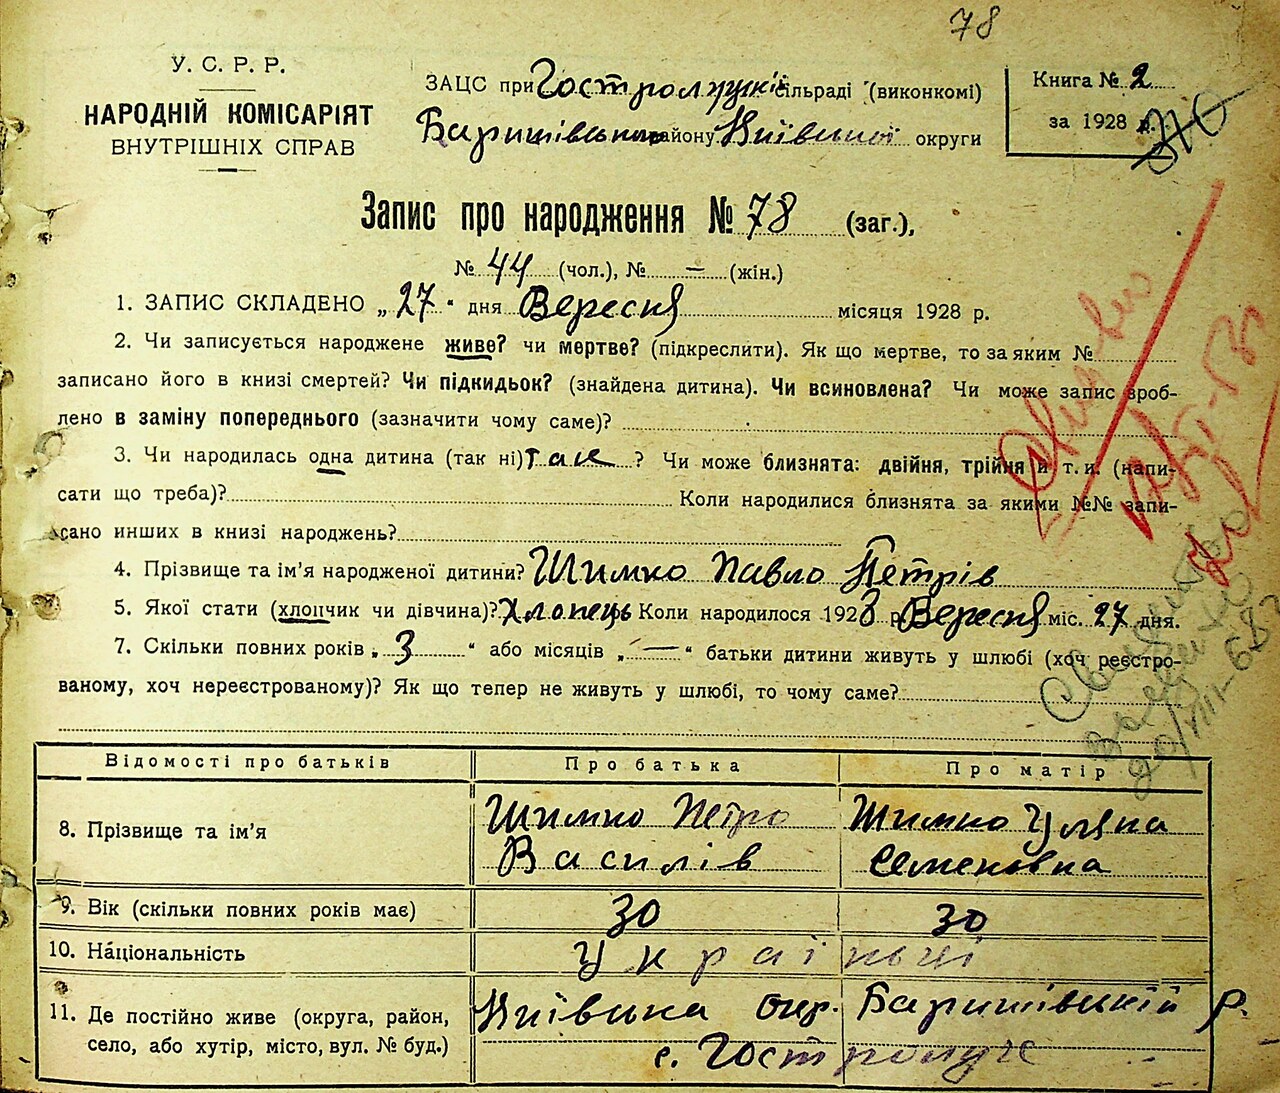 78
У. С. Р. Р.
НАРОДНІЙ КОМІСАРІЯТ
ВНУТРІШНІХ СПРАВ
ЗАЦС при Гостролуцькій сільраді (виконкомі)
Баришівського району Київської округи
Книга № 2
за 1928 р.
Запис про народження № 78 (заг.),
№ 44 (чол.), № — (жін.)
1. ЗАПИС СКЛАДЕНО „27" дня Вересня місяця 1928 р.
2. Чи записується народжене живе? чи мертве? (підкреслити). Як що мертве, то за яким №
записано його в книзі смертей? Чи підкидьок? (знайдена дитина). Чи всиновлена? Чи може запис зроб-
лено в заміну попереднього (зазначити чому саме)?
3. Чи народилась одна дитина (так ні) так ? Чи може близнята: двійня, трійня й т. и. (напи-
сати що треба)? Коли народилися близнята за якими №№ запи-
сано инших в книзі народжень?
4. Прізвище та ім'я народженої дитини? Шимко Павло Петрів
5. Якої стати (хлопчик чи дівчина)? Хлопець Коли народилося 1928 р. Вересня міс. 27 дня.
7. Скільки повних років „3" або місяців „—" батьки дитини живуть у шлюбі (хоч реєстро-
ваному, хоч нереєстрованому)? Як що тепер не живуть у шлюбі, то чому саме?
Відомості про батьків Про батька Про матір
8. Прізвище та ім'я Шимко Петро Василів Шимко Уляна Семеновна
9. Вік (скільки повних років має) 30 30
10. Національність Українці
11. Де постійно живе (округа, район, Київська окр. Баришівський р.
село, або хутір, місто, вул. № буд.) с. Гостролуче